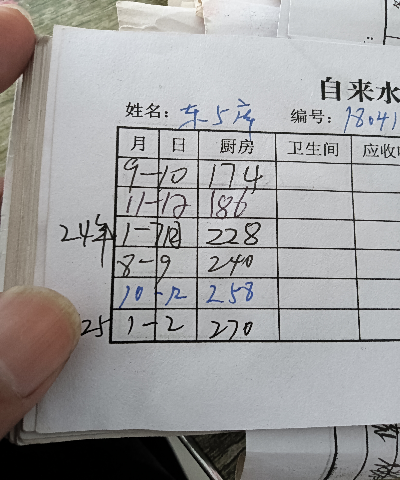 自来水
姓名: 东5库 编号: 18041
月 日 厨房 卫生间 应收
9-10 174
11-12 186
24年 1-7月 228
8-9 240
10-12 258
25 1-2 270